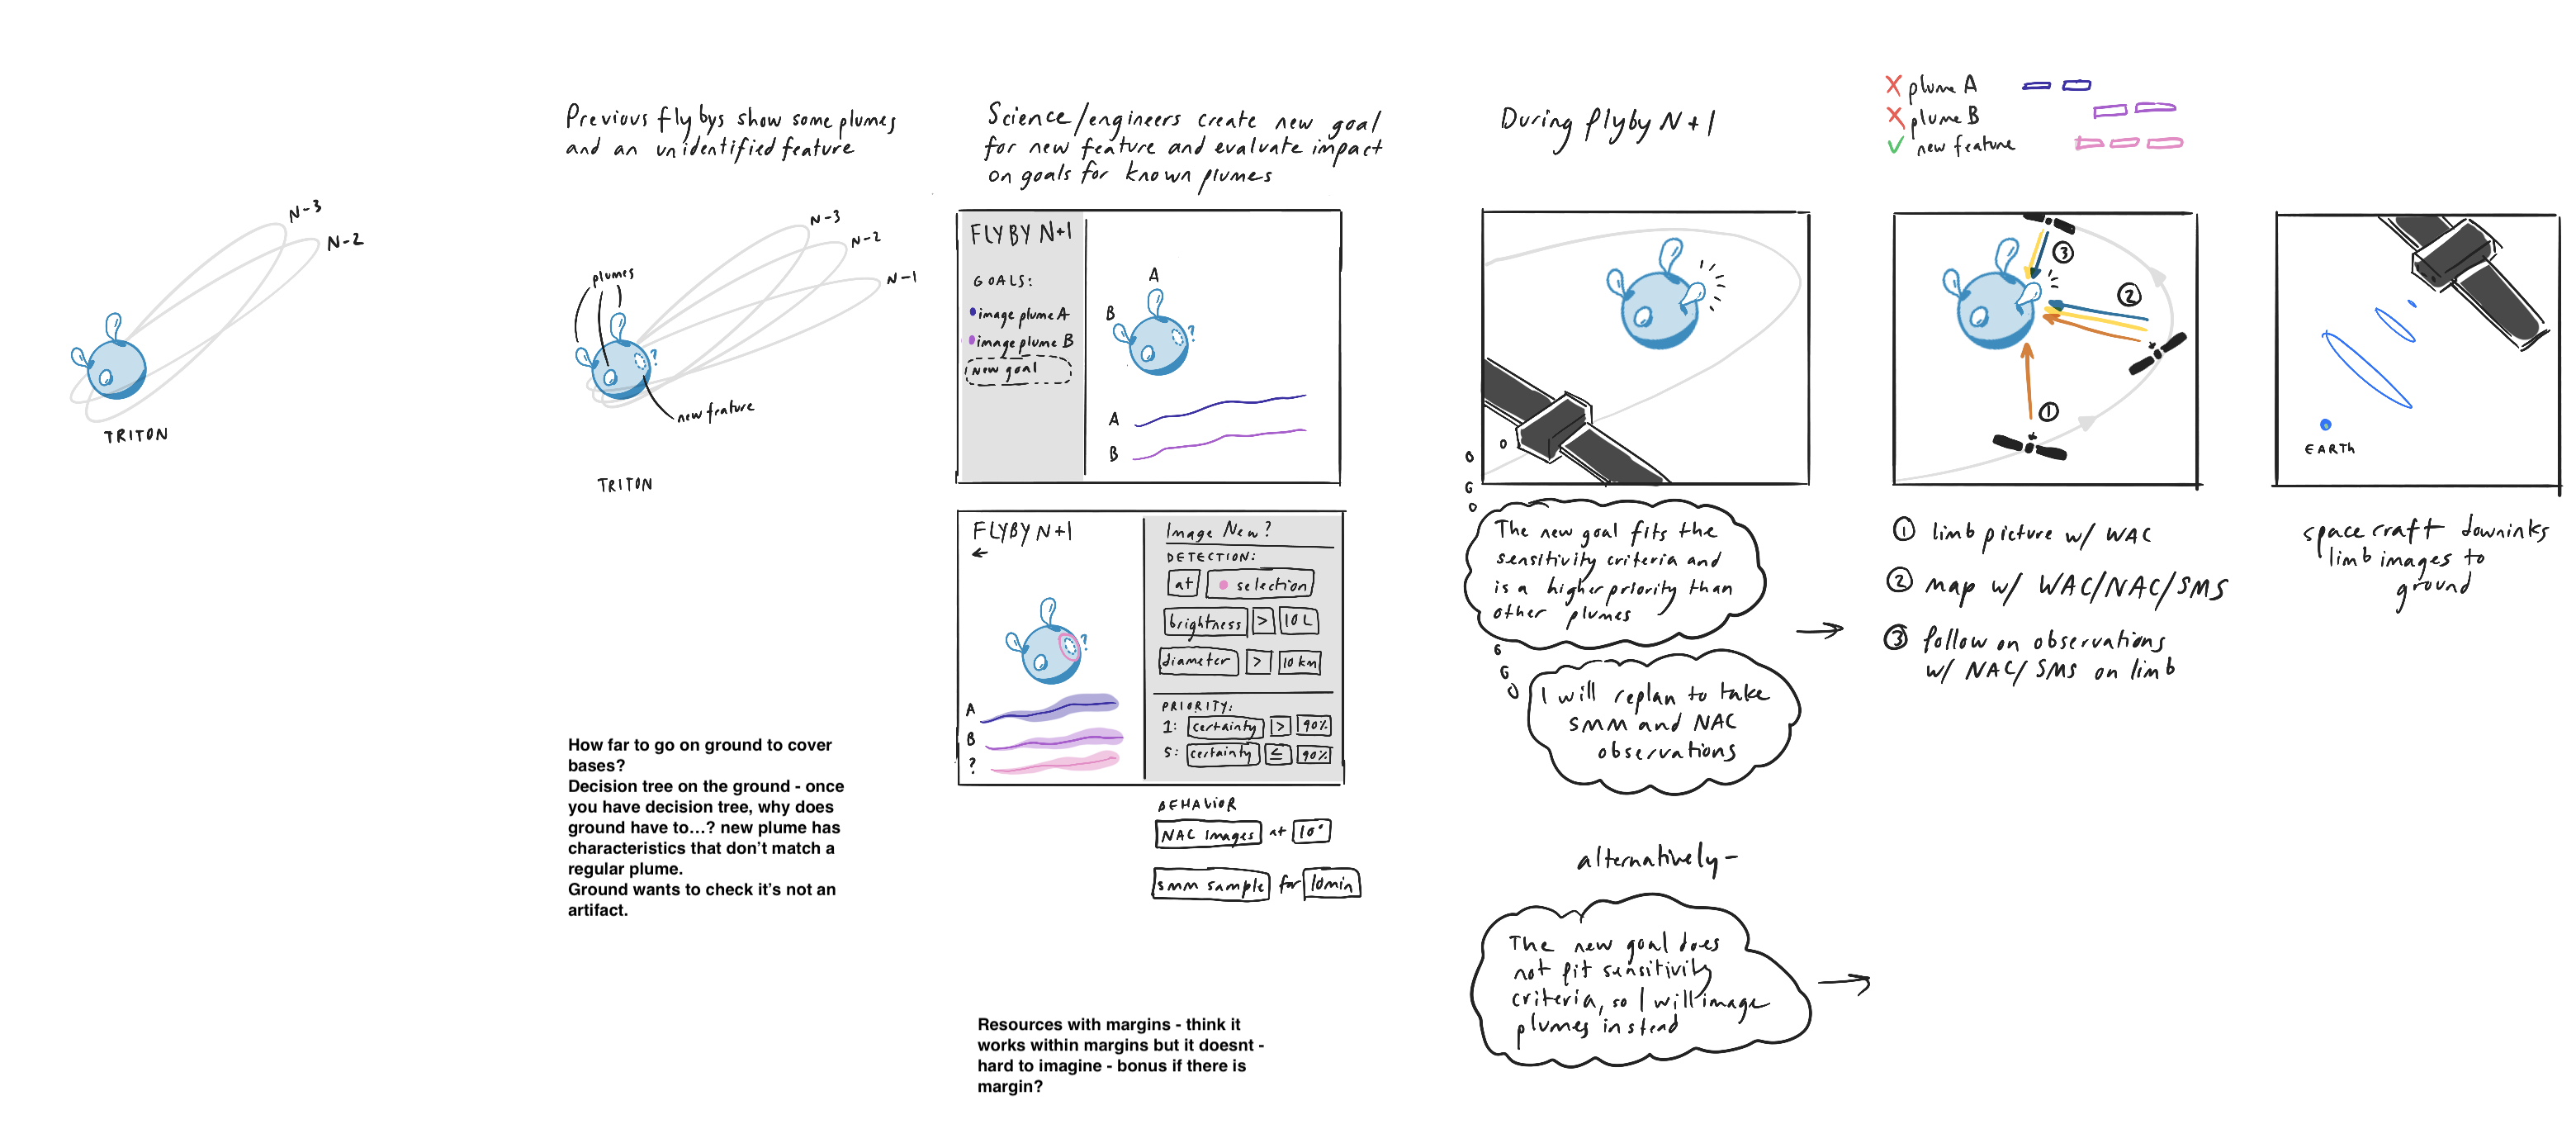 N-3
N-2
TRITON
Previous flybys show some plumes
and an unidentified feature
N-3
N-2
N-1
plumes
?
new feature
TRITON
How far to go on ground to cover
bases?
Decision tree on the ground - once
you have decision tree, why does
ground have to...? new plume has
characteristics that don't match a
regular plume.
Ground wants to check it's not an
artifact.
Science/engineers create new goal
for new feature and evaluate impact
on goals for known plumes
FLYBY N+1
GOALS:
image plume A
image plume B
New goal
A
B
?
A
B
FLYBY N+1
←
?
A
B
?
Image New?
DETECTION:
at selection
brightness > 10 L
diameter > 10 km
PRIORITY:
1: certainty > 90%
5: certainty ≤ 90%
BEHAVIOR
NAC Images at 10°
smm sample for 10min
Resources with margins - think it
works within margins but it doesnt -
hard to imagine - bonus if there is
margin?
During flyby N+1
The new goal fits the
sensitivity criteria and
is a higher priority than
other plumes
I will replan to take
SMM and NAC
observations
alternatively-
The new goal does
not fit sensitivity
criteria, so I will image
plumes instead
X plume A
X plume B
✓ new feature
3
2
1
① limb picture w/ WAC
② map w/ WAC/NAC/SMS
③ follow on observations
w/ NAC/SMS on limb
EARTH
space craft downinks
limb images to
ground